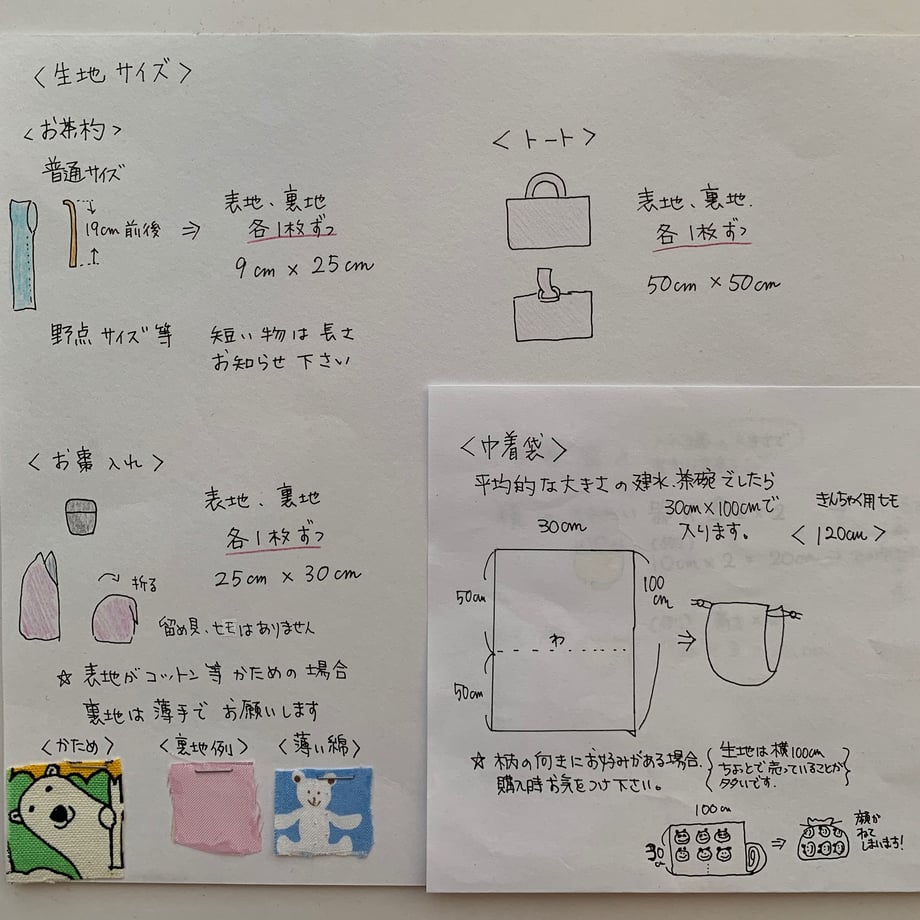 〈生地サイズ〉
〈お茶杓〉
普通サイズ
19cm前後 ⇒
表地、裏地
各1枚ずつ
9cm×25cm
野点サイズ等 短い物は長さ
お知らせ下さい
〈トート〉
表地、裏地.
各1枚ずつ
50cm×50cm
〈お棗入れ〉
表地、裏地
各1枚ずつ
25cm×30cm
折る
留め具、ヒモはありません
☆表地がコットン等かための場合
裏地は薄手でお願いします
〈かため〉 〈裏地例〉 〈薄い綿〉
〈巾着袋〉
平均的な大きさの建水、茶碗でしたら
30cm×100cmで
入ります。
きんちゃく用ヒモ
〈120cm〉
30cm
50cm
100cm
わ
50cm
☆柄の向きにお好みがある場合、
購入時お気をつけ下さい。
生地は横100cm
ちょとで売っていることが
多いです.
100cm
30
顔が
ねて
しまいます!